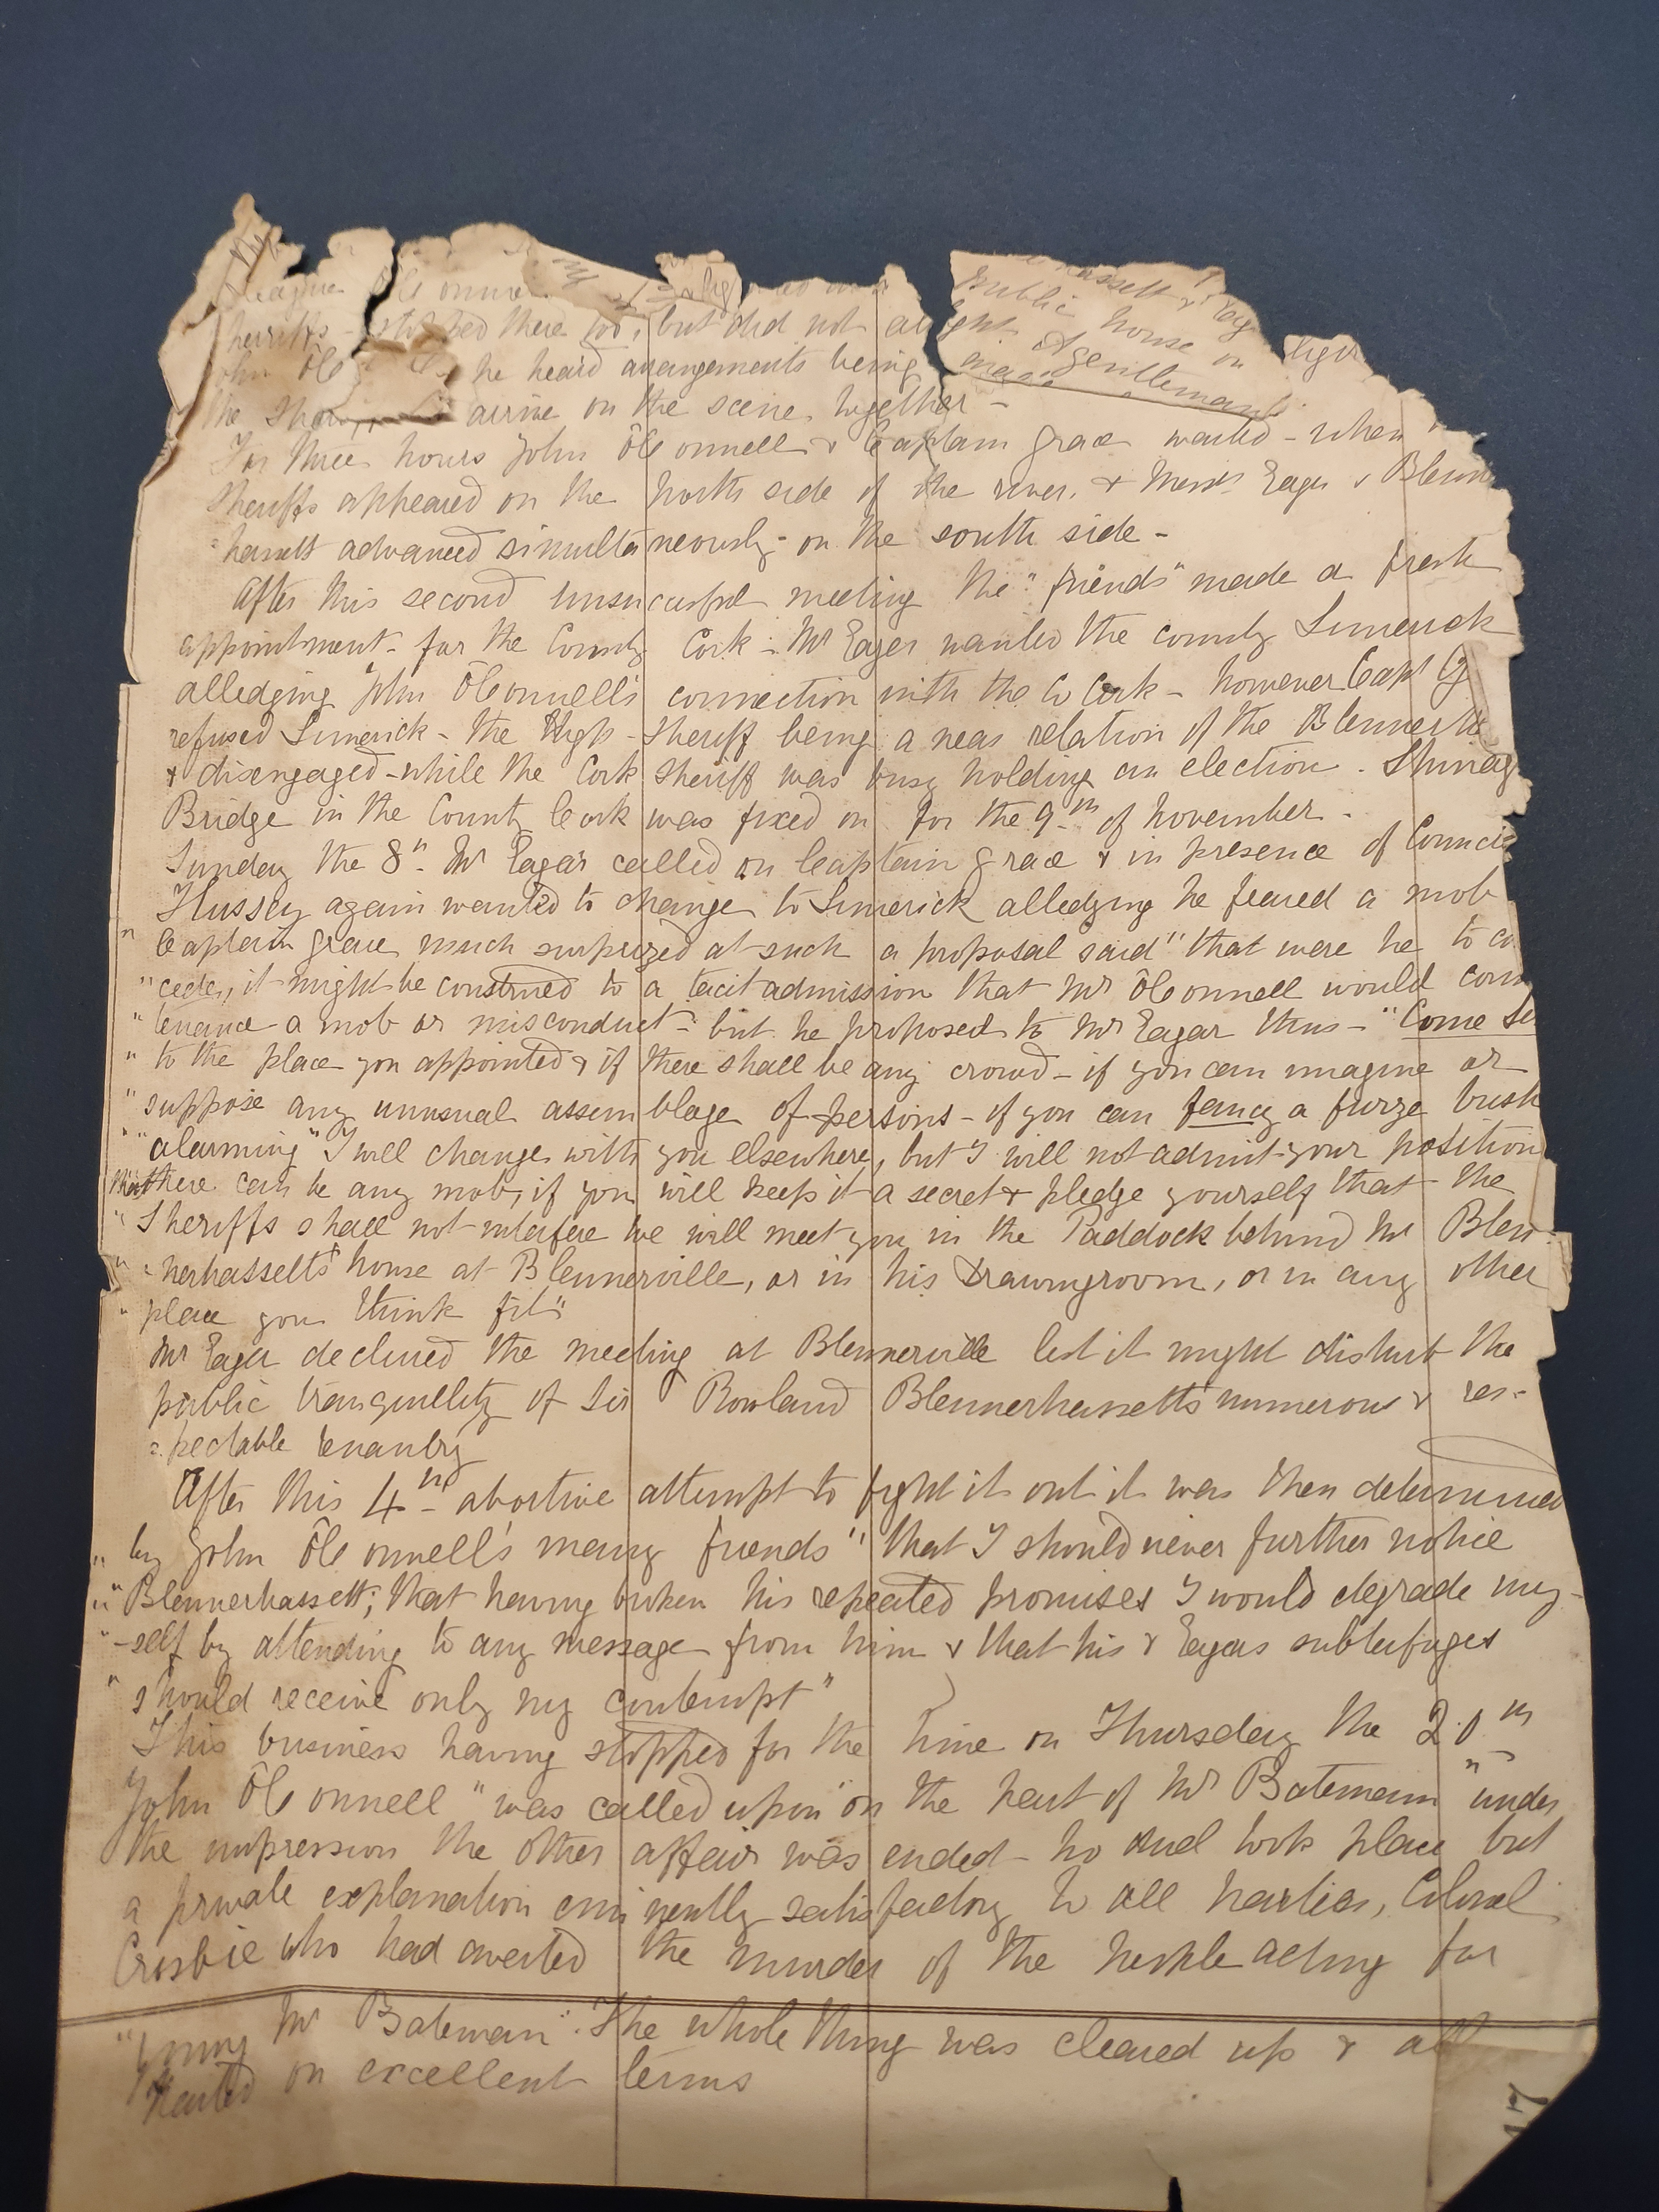 hassett &
public house on
league O'Connell
sheriffs - stopped there too, but did not alight
John O'C he heard arrangements being Gentleman
the arrive on the scene together -
For three hours John O'Connell & Captain Grace waited - when
Sheriffs appeared on the north side of the river, & Messrs Eager & Blenn
=hassett advanced simultaneously - on the south side -
After this second unsuccessful meeting the "friends" made a fresh
appointment - for the County Cork - Mr Eager wanted the county Limerick
alledging John O'Connell's connection with the Co Cork - however Capt G
refused Limerick - the High - Sheriff being a near relation of the Blennerh
& disengaged - while the Cork Sheriff was busy holding an election.
Bridge in the County Cork was fixed on for the 9th of November -
Sunday the 8th Mr Eagar called on Captain Grace & in presence of
Hussey again wanted to change to Limerick alledging he feared a mob
" Captain Grace much surprized at such a proposal said "that were he to co
" cede, it might be construed to a tacit admission that Mr O'Connell would coun
" tenance a mob or misconduct - but he proposed to Mr Eagar thus - "Come
" to the place you appointed & if there shall be any crowd - if you can imagine or
" suppose any unusual assemblage of persons - if you can fancy a furze bush
" "alarming" I will change with you elsewhere, but I will not admit your position
that there can be any mob, if you will keep it a secret & pledge yourself that the
" Sheriffs shall not interfere we will meet you in the Paddock behind Mr Blen-
" =nerhassett's house at Blennerville, or in his Drawingroom, or in any other
" place you think fit"
Mr Eager declined the meeting at Blennerville lest it might disturb the
public tranquillity of Sir Rowland Blennerhassett's numerous & res-
=pectable tenantry
After this 4th abortive attempt to fight it out it was then determined
" by John O'Connell's many friends "that I should never further notice
" Blennerhassett; that having broken his repeated promises I would degrade my-
" -self by attending to any message from him & that his & Eagars subterfuges
" should receive only my contempt"
This business having stopped for the time on Thursday the 20th
John O'Connell "was called upon" on the part of Mr Bateman "under
the impression the other affair was ended - no duel took place but
a private explanation eminently satisfactory to all parties, Colonel
Crosbie who had averted the murder of the people acting for
"young Mr Bateman". The whole thing was cleared up & all
parted on excellent terms
17